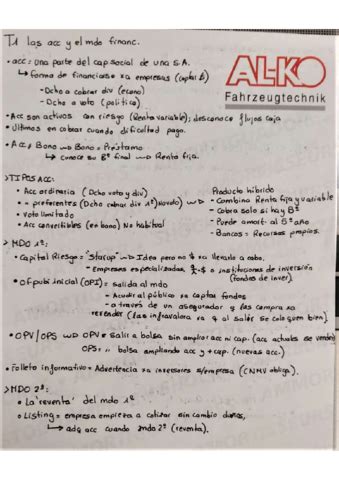 T1 las acc y el mdo financ.
• acc: una parte del cap social de una S.A.
↳ forma de financiarse xa empresas (captar $)
- Dcho a cobrar div (econo)
- Dcho a voto (político)
AL-KO
Fahrzeugtechnik
• Acc son activos con riesgo (Renta variable); desconoce flujos caja
• Últimos en cobrar cuando dificultad pago.
• Acc ≠ Bono → Bono = Préstamo
↳ conoce su Bº final → Renta fija.
> TIPOS ACC:
• Acc ordinaria (Dcho voto y div)
• " preferentes (Dcho cobrar div 1º) (No voto) →
• Voto limitado
• Acc convertibles (en bono) No habitual
Producto híbrido
- Combina Renta fija y variable
- Cobra solo si hay Bº
- Puede amort al 5º año
- Bancos = Recursos propios.
> MDO 1º:
• Capital Riesgo = "Starup" → Idea pero no $ xa llevarlo a cabo.
- Empresas especializadas o instituciones de inversión
(fondos de inver.)
• Of pub inicial (OPI) = salida al mdo
- Acudir al público xa captar fondos
- a través de un asegurador y las compra xa
revender (las infravalora xa q al salir se coloquen bien).
• OPV/OPS → OPV = Salir a bolsa sin ampliar acc ni cap. (acc actuales se venden)
OPS = " bolsa ampliando acc y cap. (nuevas acc.)
• Folleto informativo = Advertencia xa inversores s/empresa (CNMV obliga).
> MDO 2º:
• La "reventa" del mdo 1º
• Listing = empresa empieza a cotizar sin cambio
↳ adq acc cuando mdo 2º (reventa).